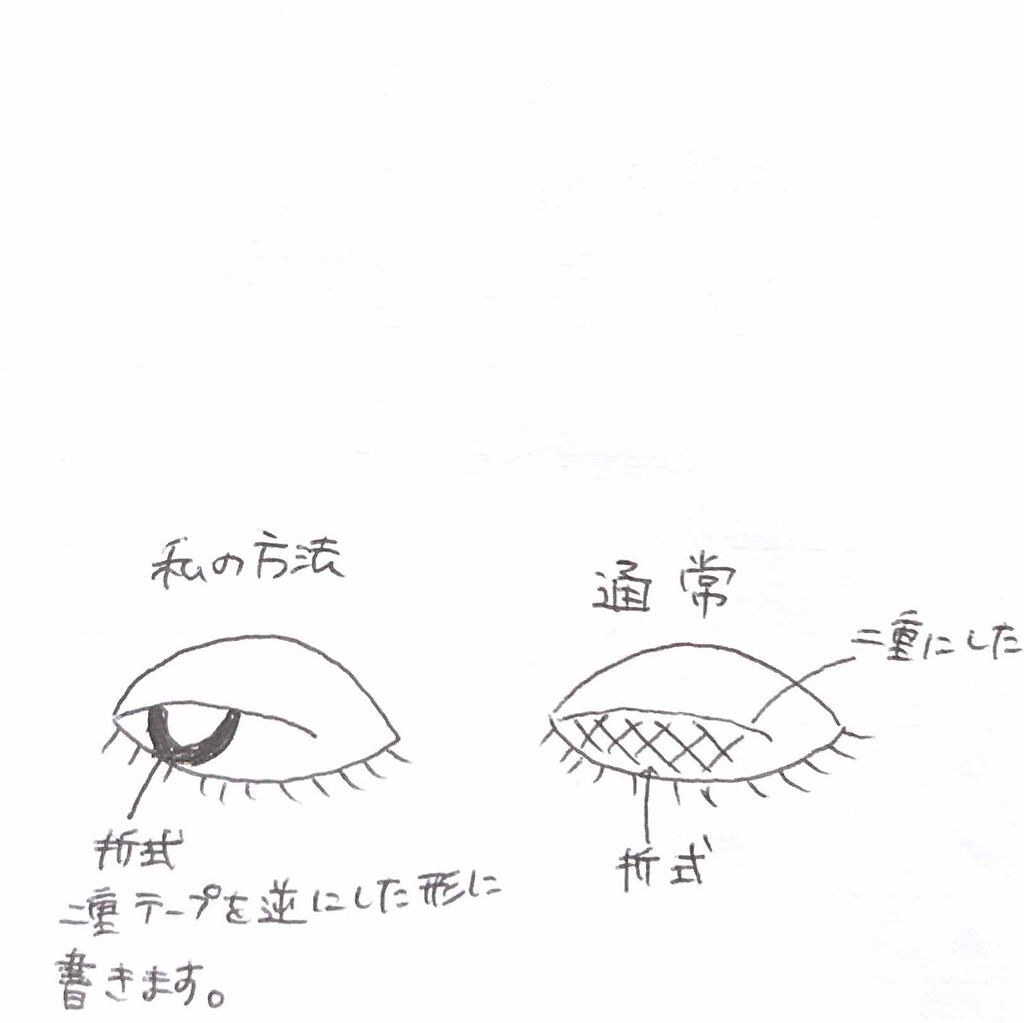 私の方法
通常
二重にした
折式
折式
二重テープを逆にした形に
書きます。